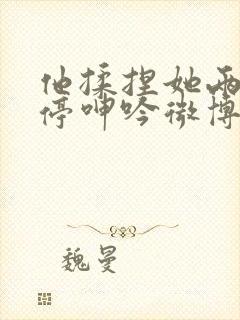 他揉捏她两
停呻吟微博
魏曼